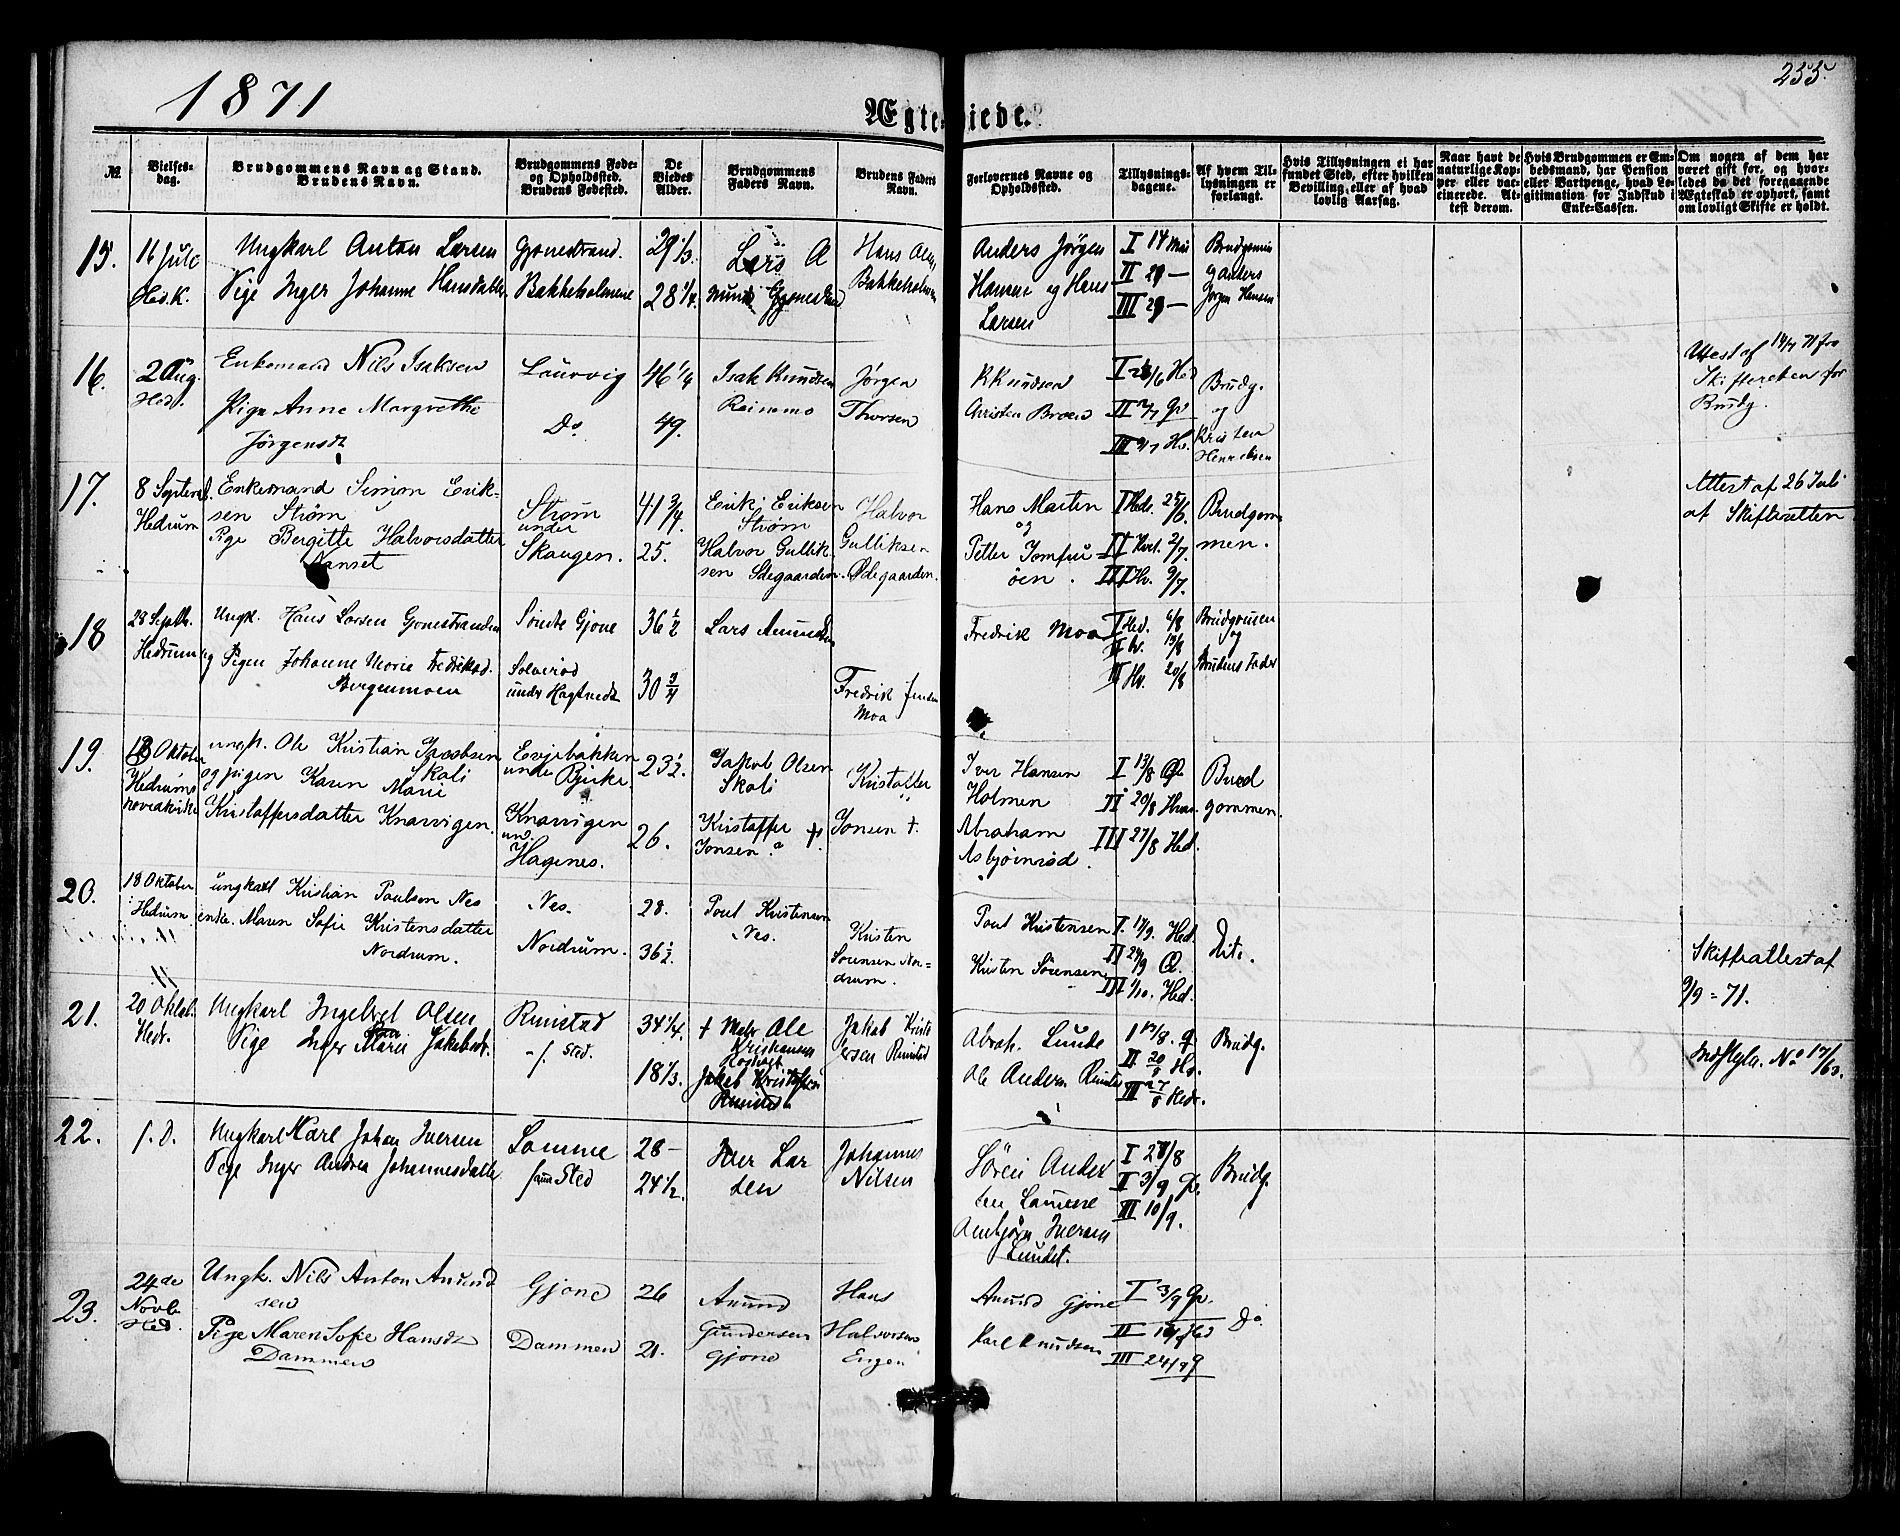 1871
Ægteviede.
255.
№
Vielses-
dag.
Brudgommens Navn og Stand.
Brudens Navn.
Brudgommens Føde-
og Opholdssted.
Brudens Fødested.
De
Viedes
Alder.
Brudgommens
Faders Navn.
Brudens Faders
Navn.
Forlovernes Navne og
Opholdssted.
Tillysnings-
dagene.
Af hvem Til-
lysningen er
forlangt.
Hvis Tillysningen ei har
fundet Sted, efter hvilken
Bevilling eller af hvad
lovlig Aarsag.
Naar havt de
naturlige Kop-
per eller vac-
cinerede. At-
test derom.
Hvis Brudgommen er Em-
bedsmand, har Pension
eller Vartpenge, hvad Le-
gitimation for Indskud i
Enke-Cassen.
Om nogen af dem har
været gift før, og hvor-
ledes da det foregaaende
Ægteskab er ophørt, samt
om lovligt Skifte er holdt.
15.
16 Juli
Hed. K.
Ungkarl Anton Larsen
Pige Inger Johanne Hansdatter
Gjonestrand.
Bakkeholmene
29 1/3.
28 1/4.
Lars A
mund Gjonestrand
Hans
Bakkeholmen
Anders Jørgen
Hansen og Hans
Larsen
I 14 Mai
II 21 —
III 29 —
Brudgommen
og Anders
Jørgen Hansen
16.
2 Aug.
Hed.
Enkemand Nils Isaksen
Pige Anne Margrethe
Jørgensdt
Laurvig
Do
46 1/4
49.
Isak Knudsen
Jørgen
Thorsen
K Knudsen
Christen
I 25/6 Hed
II 2/7 Qv
III 9/7 Hv.
Brudg.
og
Kristen
Henriksen
Attest af 14/7 71 fra
Skifteretten for
Brudg.
17.
8 Septemb.
Hedrum
Enkemand Simon Erik-
sen Strøm
Pige Bergitte Halvorsdatter
Strøm
under
Skaugen.
41 3/4.
25.
Erik Eriksen
Strøm
Halvor Gullik-
sen Ødegaarden.
Halvor
Gulliksen
Ødegaarden.
Hans Martin
og
Petter Jomfru-
øen.
I Hedr. 25/6.
II Kvel. 2/7.
III Hv. 9/7.
Brudgom-
men.
Attest af 26 Juli
af Skifteretten
18
28 Septbr.
Hedrum
Ungk. Hans Larsen Gjonestranden
og Pigen Johanne Marie Fredriksd.
Bergenmoen
Søndre Gjone
Solverød
under Hagtvedt
36 1/2
30 3/4
Lars Amundsen
Fredrik Jensen
Moa
Fredrik Moa
I Hed. 6/8
II Hv. 13/8
III Hv. 20/8
Brudgommen
og
Brudens Fader
19.
18 Oktober
Hedrums
hovedkirke
ungk. Ole Kristian Jacobsen
Skali
og pigen Karen Marie
Kristoffersdatter Knarvigen.
Evjebakken
under Bjerke
Knarvigen
und.
Hagenes.
23 1/2.
26.
Jakob Olsen
Skali
Kristoffer
Jonsen. †.
Kristoffer
Jonsen †.
Iver Hansen
Holmen
Abraham
Asbjørnrød.
I 13/8 Qv
II 20/8 Hvar.
III 27/8 Hed.
Brud
gommen.
20.
18 Oktober
Hedrum
ungkarl Kristian Paulsen Nes
enke. Maren Sofie Kristensdatter
Nordrum.
Nes.
Nordrum.
28.
36 1/2.
Poul Kristensen
Nes.
Kristen
Sørensen Nor=
drum.
Poul Kristensen
Kristen Sørensen
I. 17/9. Hed.
II 24/9 Q.
III 1/10. Hed.
Dito.
Skifteattest af
9/9 = 71.
21.
20 Oktob.
Hedr.
Ungkarl Ingelvel Olsen
Pige Inger Marie Jakobsdt.
Rimstad
s. sted.
34 1/4.
18 1/3.
† Ole
Kristiansen
Jakob Kristoffersen
Rimstad
Jakob Kristof
fersen Rimstad
Abrah. Lunde
Ole Andersen Rimstad
I 13/8. q
II 20/8 Hv.
III 27/8 Hedr.
Brudg.
22.
s. D.
Ungkarl Karl Johan Iversen
Pige Inger Andrea Johannesdatter
Lamme
samSted
28 —
24 1/2.
Iver Lar
sen
Johannes
Nilsen
SørenAnder
sen Lamme
Anebjørn Iversen
Lundet.
I 27/8
II 3/9 Q.
III 10/9.
Brudg.
23.
24de
Novb.
Hed.
Ungk. Nils Anton Amund
sen
Pige Maren Sofie Hansdt
Dammen
Gjone
Dammen
26
21.
Amund
Gundersen
Gjone
Hans
Halvorsen
Engen
Amund Gjone
Karl Knudsen
I 3/9 Qv.
II 10/9 Hed
III 24/9 q
Do